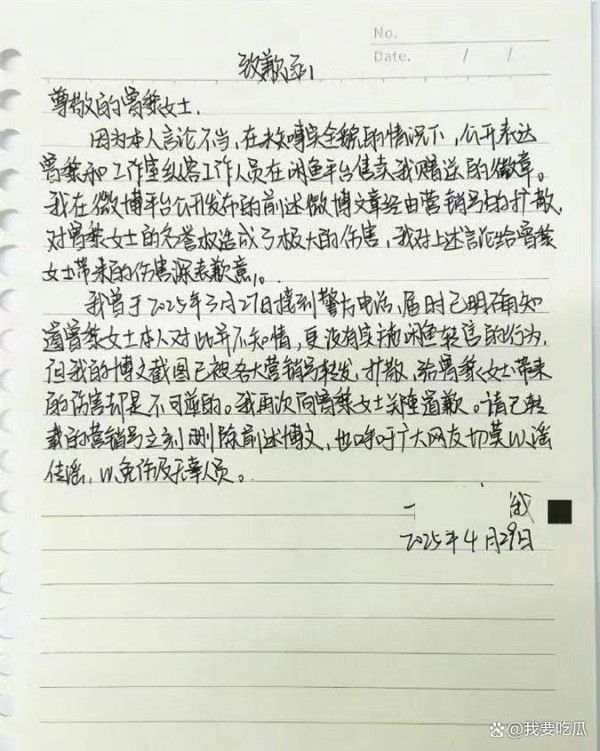 No.
Date. / /
致歉函
尊敬的曾黎女士:
因为本人言论不当,在未晓实全貌的情况下,公开表达
曾黎和工作室纵容工作人员在闲鱼平台售卖我赠送的徽章。
我在微博平台公开发布的前述微博文章经由营销号的扩散,
对曾黎女士的名誉权造成了极大的伤害,我对上述言论给曾黎
女士带来的伤害深表歉意。
我曾于2025年3月27日接到警方电话,届时已明确知
道曾黎女士本人对此并不知情,更没有实施闲鱼转售的行为,
但我的博文截图已被各大营销号转发、扩散,给曾黎女士带来
的伤害却是不可逆的。我再次向曾黎女士郑重道歉。请已转
载的营销号立刻删除前述博文,也呼吁广大网友切莫以谣
传谣,以免伤及无辜人员。
2025年4月29日
@我要吃瓜